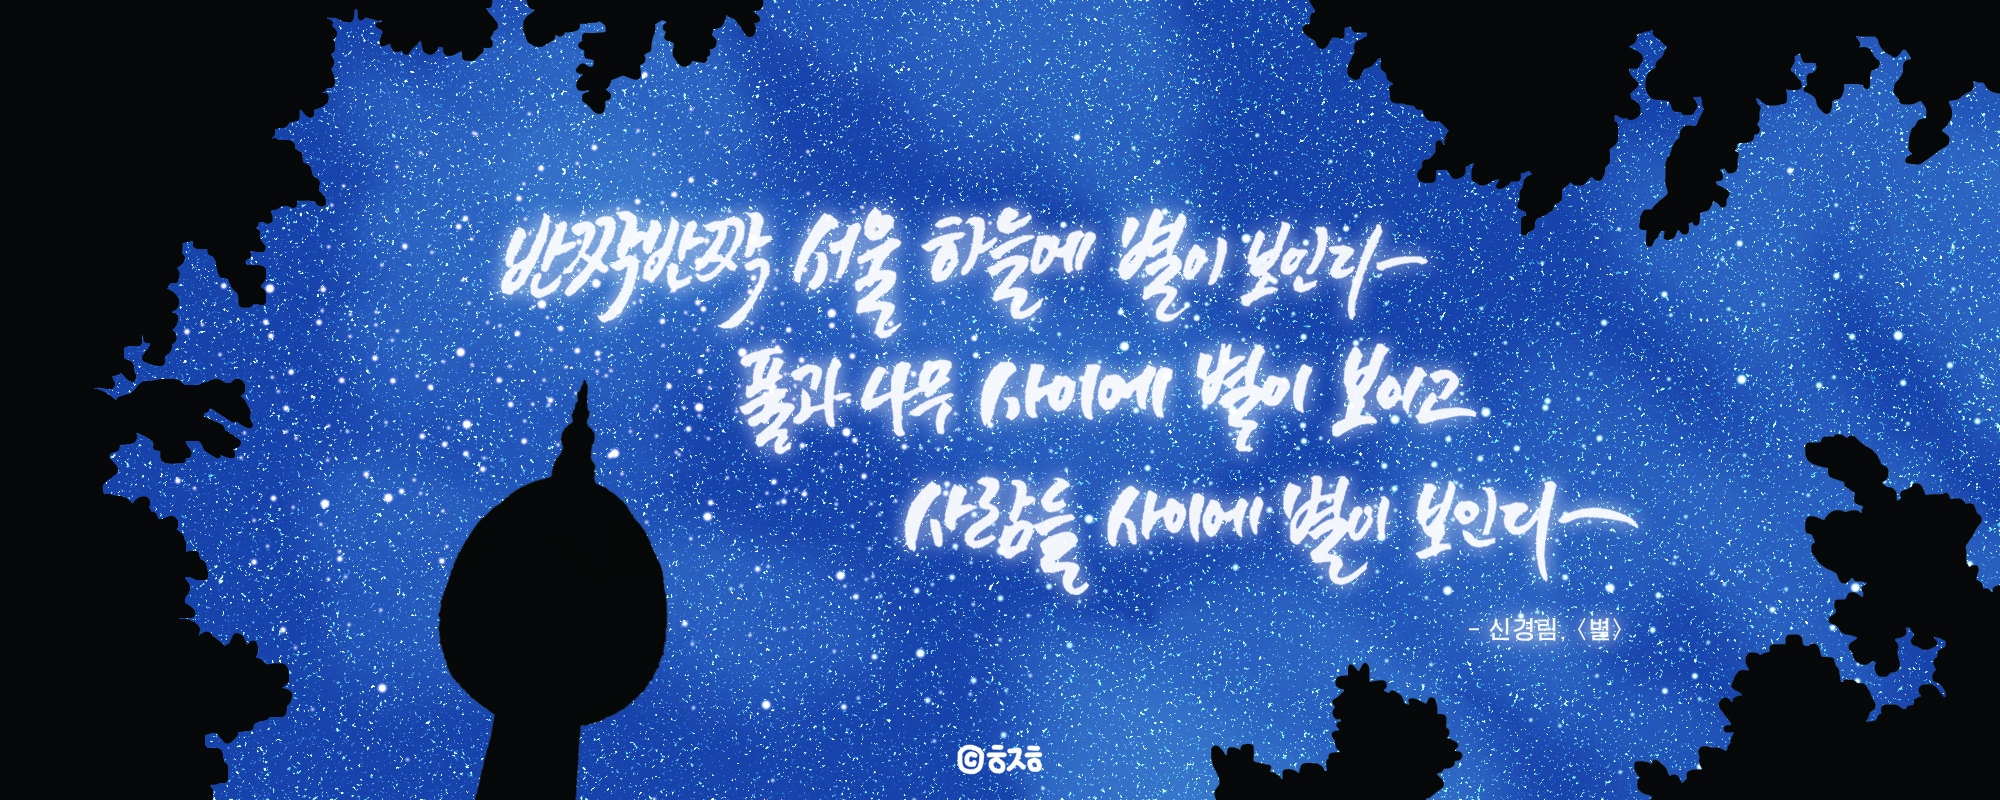 반짝반짝 서울 하늘에 별이 보인다
풀과 나무 사이에 별이 보이고
사람들 사이에 별이 보인다
- 신경림, 〈별〉
ⓒㅎㅈㅎ